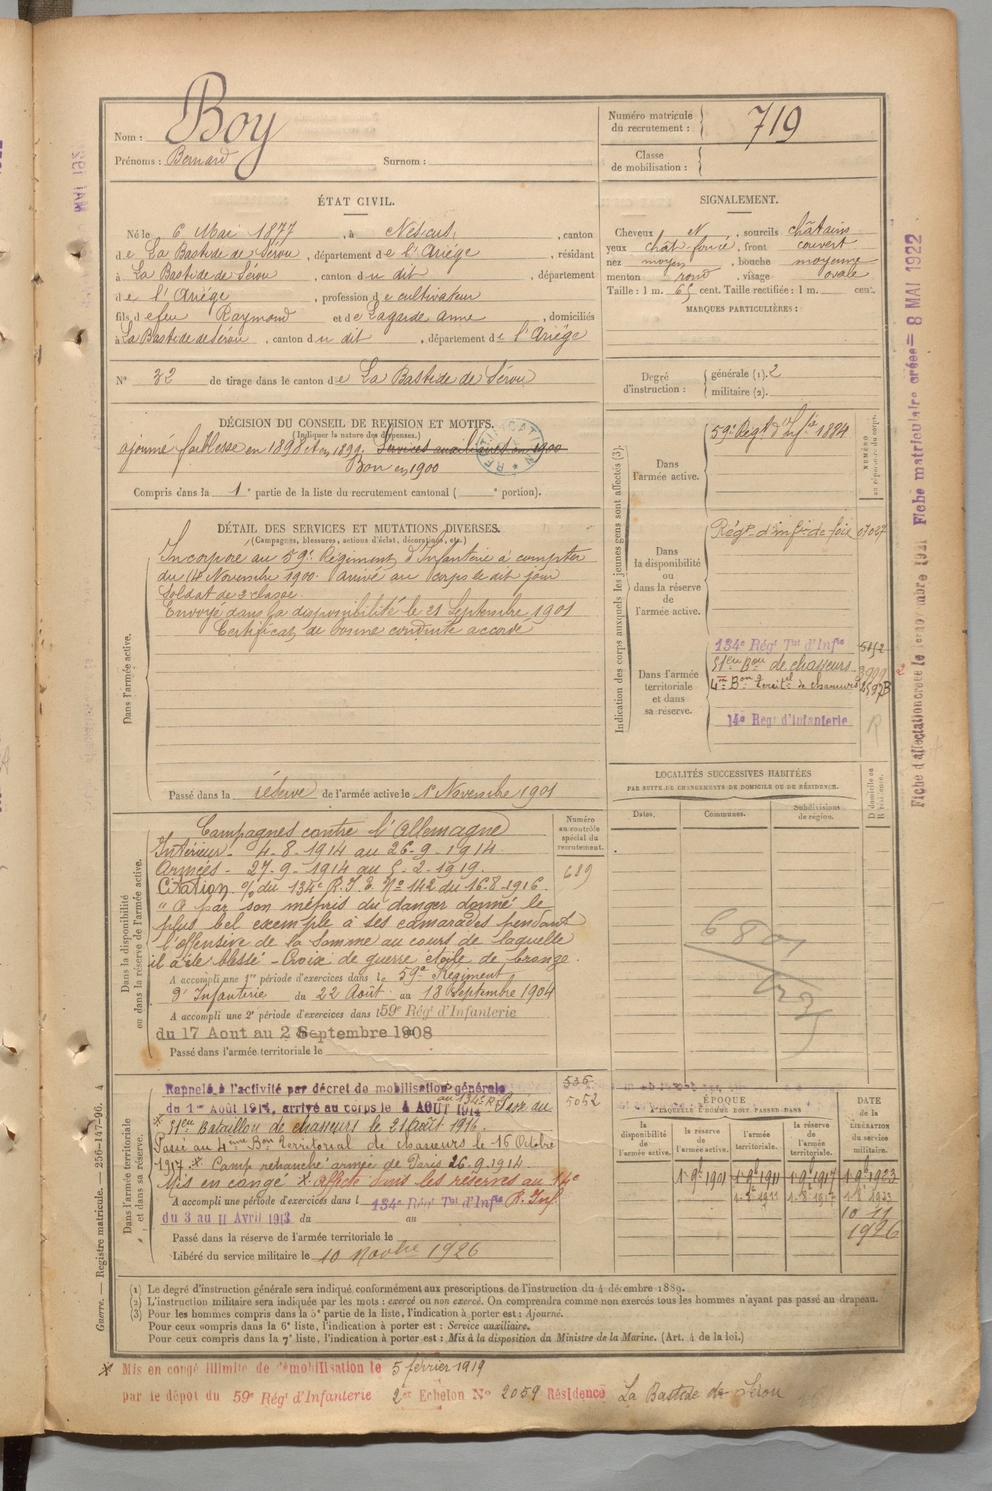 Nom : Boy
Prénoms : Bernard Surnom :
Numéro matricule du recrutement : 719
Classe de mobilisation :
ÉTAT CIVIL.
Né le 6 Mai 1877, à Nescus, canton
de La Bastide de Sérou, département de l'Ariège, résidant
à La Bastide de Sérou, canton du dit, département
de l'Ariège, profession de cultivateur
fils de feu Raymond et de Lagarde Anne, domiciliés
à La Bastide de Sérou, canton du dit, département de l'Ariège
N° 32 de tirage dans le canton de La Bastide de Sérou
SIGNALEMENT.
Cheveux et, sourcils châtains
yeux chât foncé, front couvert
nez moyen, bouche moyenne
menton rond, visage ovale
Taille : 1 m. 65 cent. Taille rectifiée : 1 m. cent.
MARQUES PARTICULIÈRES :
Degré d'instruction : générale (1). 2
militaire (2).
DÉCISION DU CONSEIL DE REVISION ET MOTIFS.
(Indiquer la nature des dispenses.)
ajourné faiblesse en 1898 et en 1899. Services auxiliaires en 1900
Bon en 1900
RECTIFICATION
Compris dans la 1e partie de la liste du recrutement cantonal ( e portion).
DÉTAIL DES SERVICES ET MUTATIONS DIVERSES.
(Campagnes, blessures, actions d'éclat, décorations, etc.)
Dans l'armée active.
Incorporé au 59e Régiment d'Infanterie à compter
du 14 Novembre 1900. Arrivé au corps le dit jour
Soldat de 2e classe.
Envoyé dans la disponibilité le 21 Septembre 1901
Certificat de bonne conduite accordé
Passé dans la réserve de l'armée active le 1r Novembre 1901
Indication des corps auxquels les jeunes gens sont affectés (3).
NUMÉRO au répertoire du corps.
Dans l'armée active.
59e Régt d'Infie 1884
Dans la disponibilité ou dans la réserve de l'armée active.
Régt d'inf de foix 07027
Dans l'armée territoriale et dans sa réserve.
134e Régt Tal d'Infie 5052
51em Bon de chasseurs
4em Bon territel de chasseurs
14e Regt d'Infanterie R
LOCALITÉS SUCCESSIVES HABITÉES
PAR SUITE DE CHANGEMENTS DE DOMICILE OU DE RÉSIDENCE.
Dates. Communes. Subdivisions de région. D domicile ou R résidence.
Dans la disponibilité ou dans la réserve de l'armée active.
Numéro au contrôle spécial du recrutement.
689
Campagnes contre l'Allemagne
Intérieur - 4-8-1914 au 26-9-1914
Armées - 27-9-1914 au 5-2-1919.
Citation o/ du 134e R.I.T. No 142 du 16-8-1916.
" A par son mépris du danger donné le
plus bel exemple à ses camarades pendant
l'offensive de la Somme au cours de laquelle
il a été blessé - Croix de guerre étoile de bronze.
A accompli une 1re période d'exercices dans le 59e Régiment
d'Infanterie du 22 Août au 18 Septembre 1904
A accompli une 2e période d'exercices dans le 59e Régt d'Infanterie
du 17 Aout au 2 Septembre 1908
Passé dans l'armée territoriale le
Dans l'armée territoriale et dans sa réserve.
Rappelé à l'activité par décret de mobilisation générale 536
du 1er Août 1914, arrivé au corps le 4 AOUT 1914 au 134e R Passé au 5052
51em Bataillon de chasseurs le 21 août 1916.
Passé au 4eme Bon territorial de chasseurs le 16 Octobre
1917. x Camp retranché armée de Paris 26.9.1914
Mis en congé x affecté dans les réserves au 14e
R. Inf
A accompli une période d'exercices dans le 134e Régt Tal d'Infie
du 3 au 11 Avril 1913 du au
Passé dans la réserve de l'armée territoriale le
Libéré du service militaire le 10 Novbre 1926
ÉPOQUE
À LAQUELLE L'HOMME DOIT PASSER DANS
la disponibilité de l'armée active. la réserve de l'armée active. l'armée territoriale. la réserve de l'armée territoriale.
DATE de la LIBÉRATION du service militaire.
1-9bre 1901 1-9bre 1911 1-9bre 1917 1-9bre 1923
10 11
1926
(1) Le degré d'instruction générale sera indiqué conformément aux prescriptions de l'instruction du 4 décembre 1889.
(2) L'instruction militaire sera indiquée par les mots : exercé ou non exercé. On comprendra comme non exercés tous les hommes n'ayant pas passé au drapeau.
(3) Pour les hommes compris dans la 5e partie de la liste, l'indication à porter est : Ajourné.
Pour ceux compris dans la 6e liste, l'indication à porter est : Service auxiliaire.
Pour ceux compris dans la 7e liste, l'indication à porter est : Mis à la disposition du Ministre de la Marine. (Art. 4 de la loi.)
Guerre. — Registre matricule. — 256-147-96. 4
x Mis en congé illimité de démobilisation le 5 février 1919
par le dépôt du 59e Régt d'Infanterie 2em Echelon No 2059 Résidence La Bastide de Sérou
Fiche matriculaire créée = 8 MAI 1922